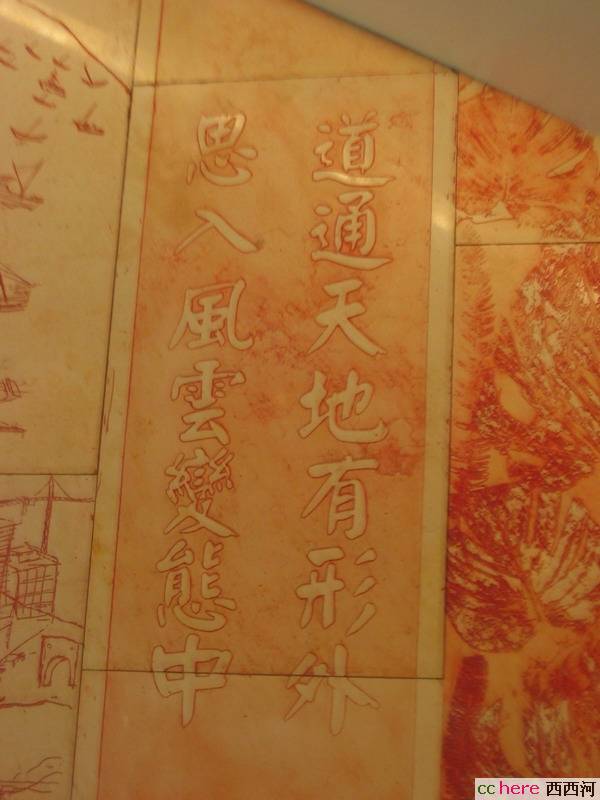 道通天地有形外
思入風雲變態中
cchere 西西河